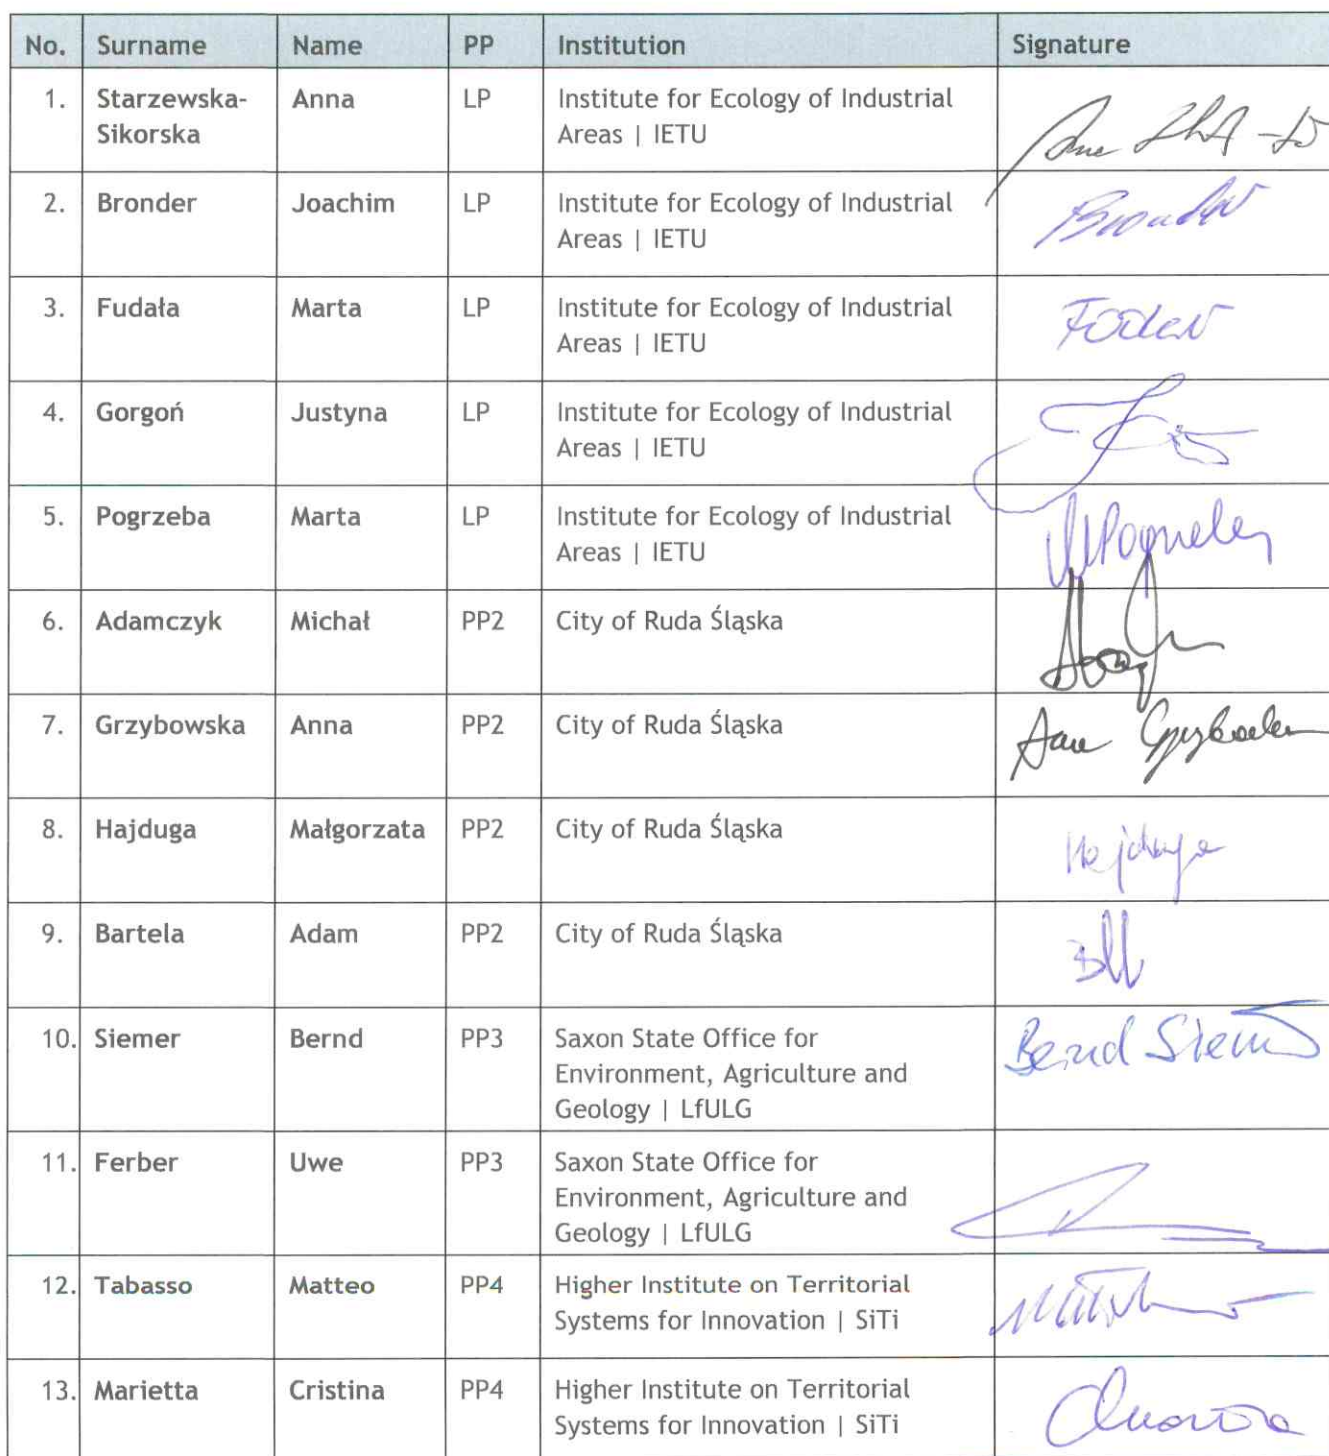 No. Surname Name PP Institution Signature
1. Starzewska- Anna LP Institute for Ecology of Industrial
Sikorska Areas | IETU
2. Bronder Joachim LP Institute for Ecology of Industrial
Areas | IETU
3. Fudała Marta LP Institute for Ecology of Industrial
Areas | IETU
4. Gorgoń Justyna LP Institute for Ecology of Industrial
Areas | IETU
5. Pogrzeba Marta LP Institute for Ecology of Industrial
Areas | IETU
6. Adamczyk Michał PP2 City of Ruda Śląska
7. Grzybowska Anna PP2 City of Ruda Śląska
8. Hajduga Małgorzata PP2 City of Ruda Śląska
9. Bartela Adam PP2 City of Ruda Śląska
10. Siemer Bernd PP3 Saxon State Office for Bernd Siemer
Environment, Agriculture and
Geology | LfULG
11. Ferber Uwe PP3 Saxon State Office for
Environment, Agriculture and
Geology | LfULG
12. Tabasso Matteo PP4 Higher Institute on Territorial
Systems for Innovation | SiTi
13. Marietta Cristina PP4 Higher Institute on Territorial
Systems for Innovation | SiTi